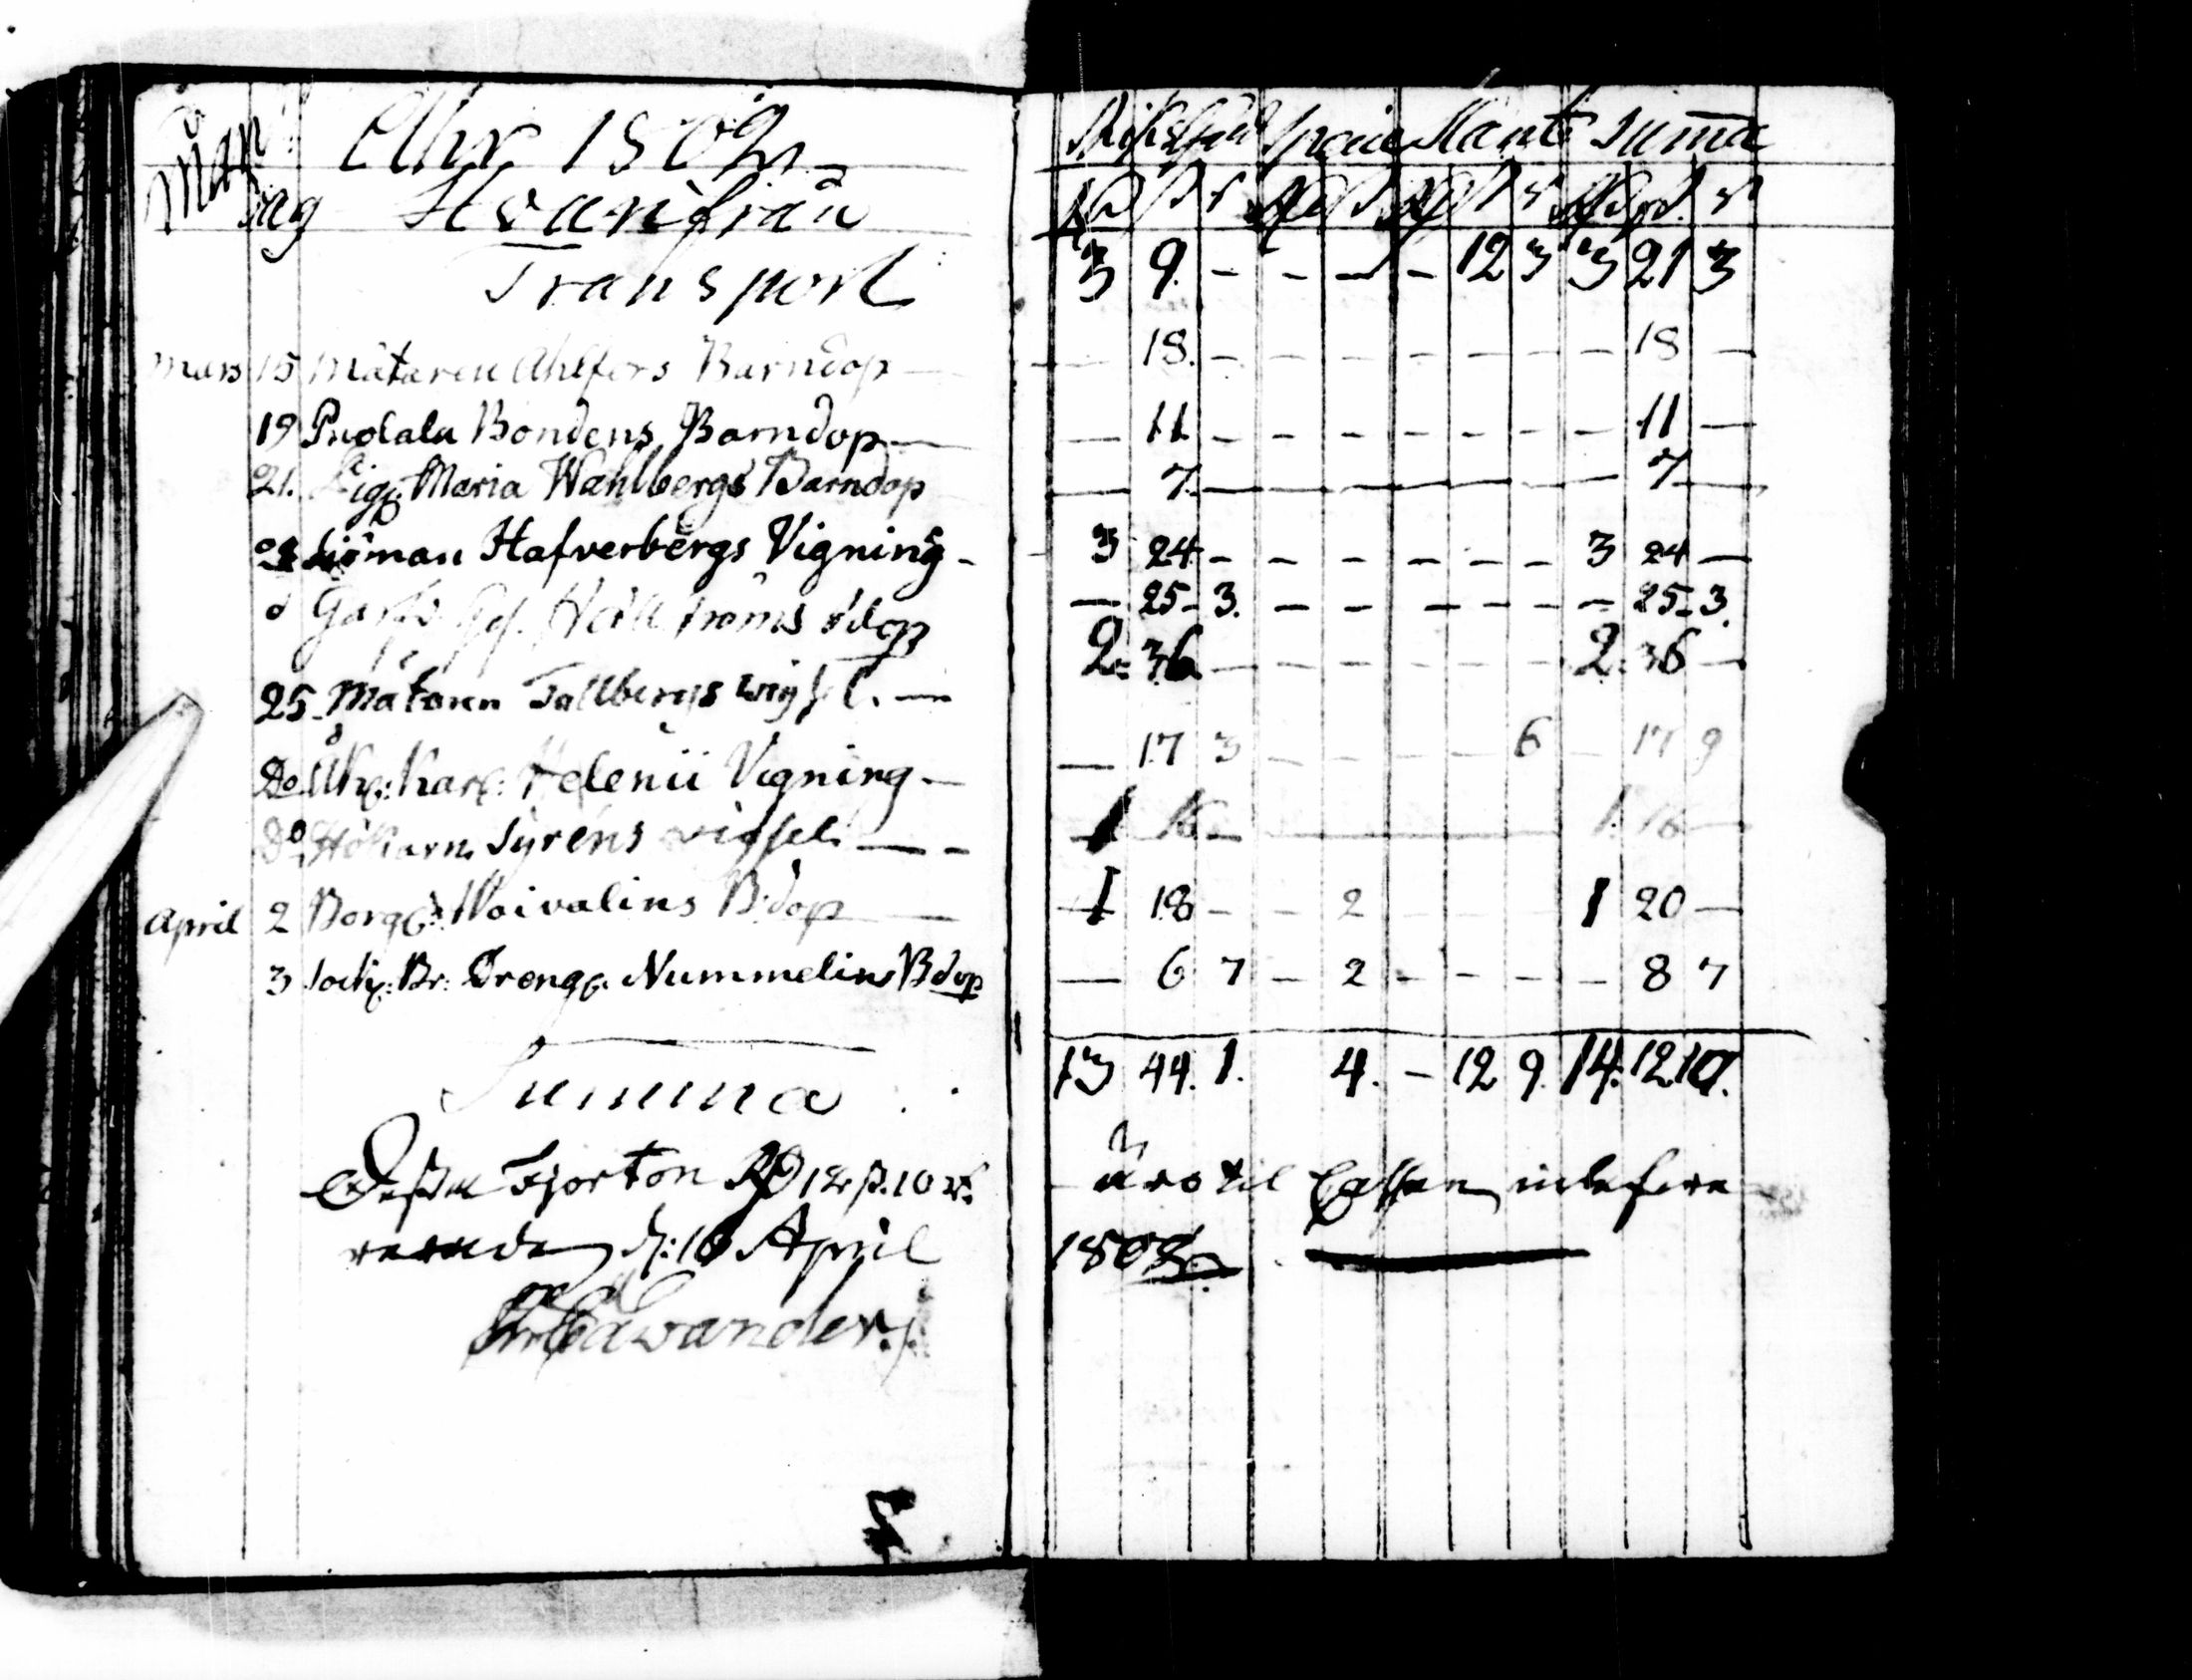 Mån: Åhr 1802
dag Hvarifrån Riksgäld Specie Slantar Summa
Rd s r Rd s Rd s r Rd s r
Transport 3 9. - - - - 12 3 3 21 3
Mars 15 Mätaren Ahlfors Barndop — — 18. - - - - - - - 18 —
19 Puolala Bondens Barndop — — 11. - - - - - - - 11 —
21. Pig: Maria Wahlbergs Barndop — 7. — 7 —
Hafverbergs Vigning - 3 24 - - - - - - 3 24 —
d — 25 - 3. - - - - - - 25 - 3.
25. Mätaren Tallbergs wigsel. — 2: 36 — - - - - - 2: 36 —
Do Helenii Vigning — — 17 3 - - - - 6 - 17 9
Do Hökaren Syréns vigsel — - 1 16 — 1. 16 —
April 2 Borg: Woivalins B:dop — 1 18 - - 2 1 20 —
3 Sock: Br: Dreng: Nummelins Bdop — 6 7 - 2 - - - - - 8 7
Summa 13 44. 1. 4. - 12 9. 14: 12 10.
Dessa Fjorton Rd 12 s. 10 r. äro til Cassan inlefere
rerade d: 16 April 1802.
Cawander